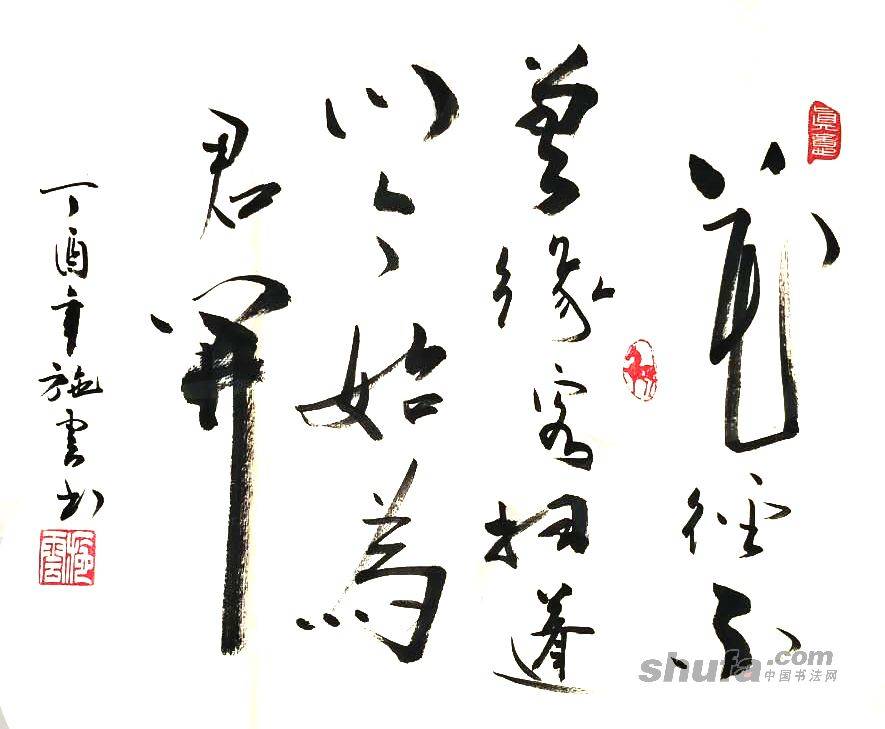 花徑不
曾緣客掃蓬
門今始為
君開
丁酉年施雲書
施雲
shufa.com
中国书法网